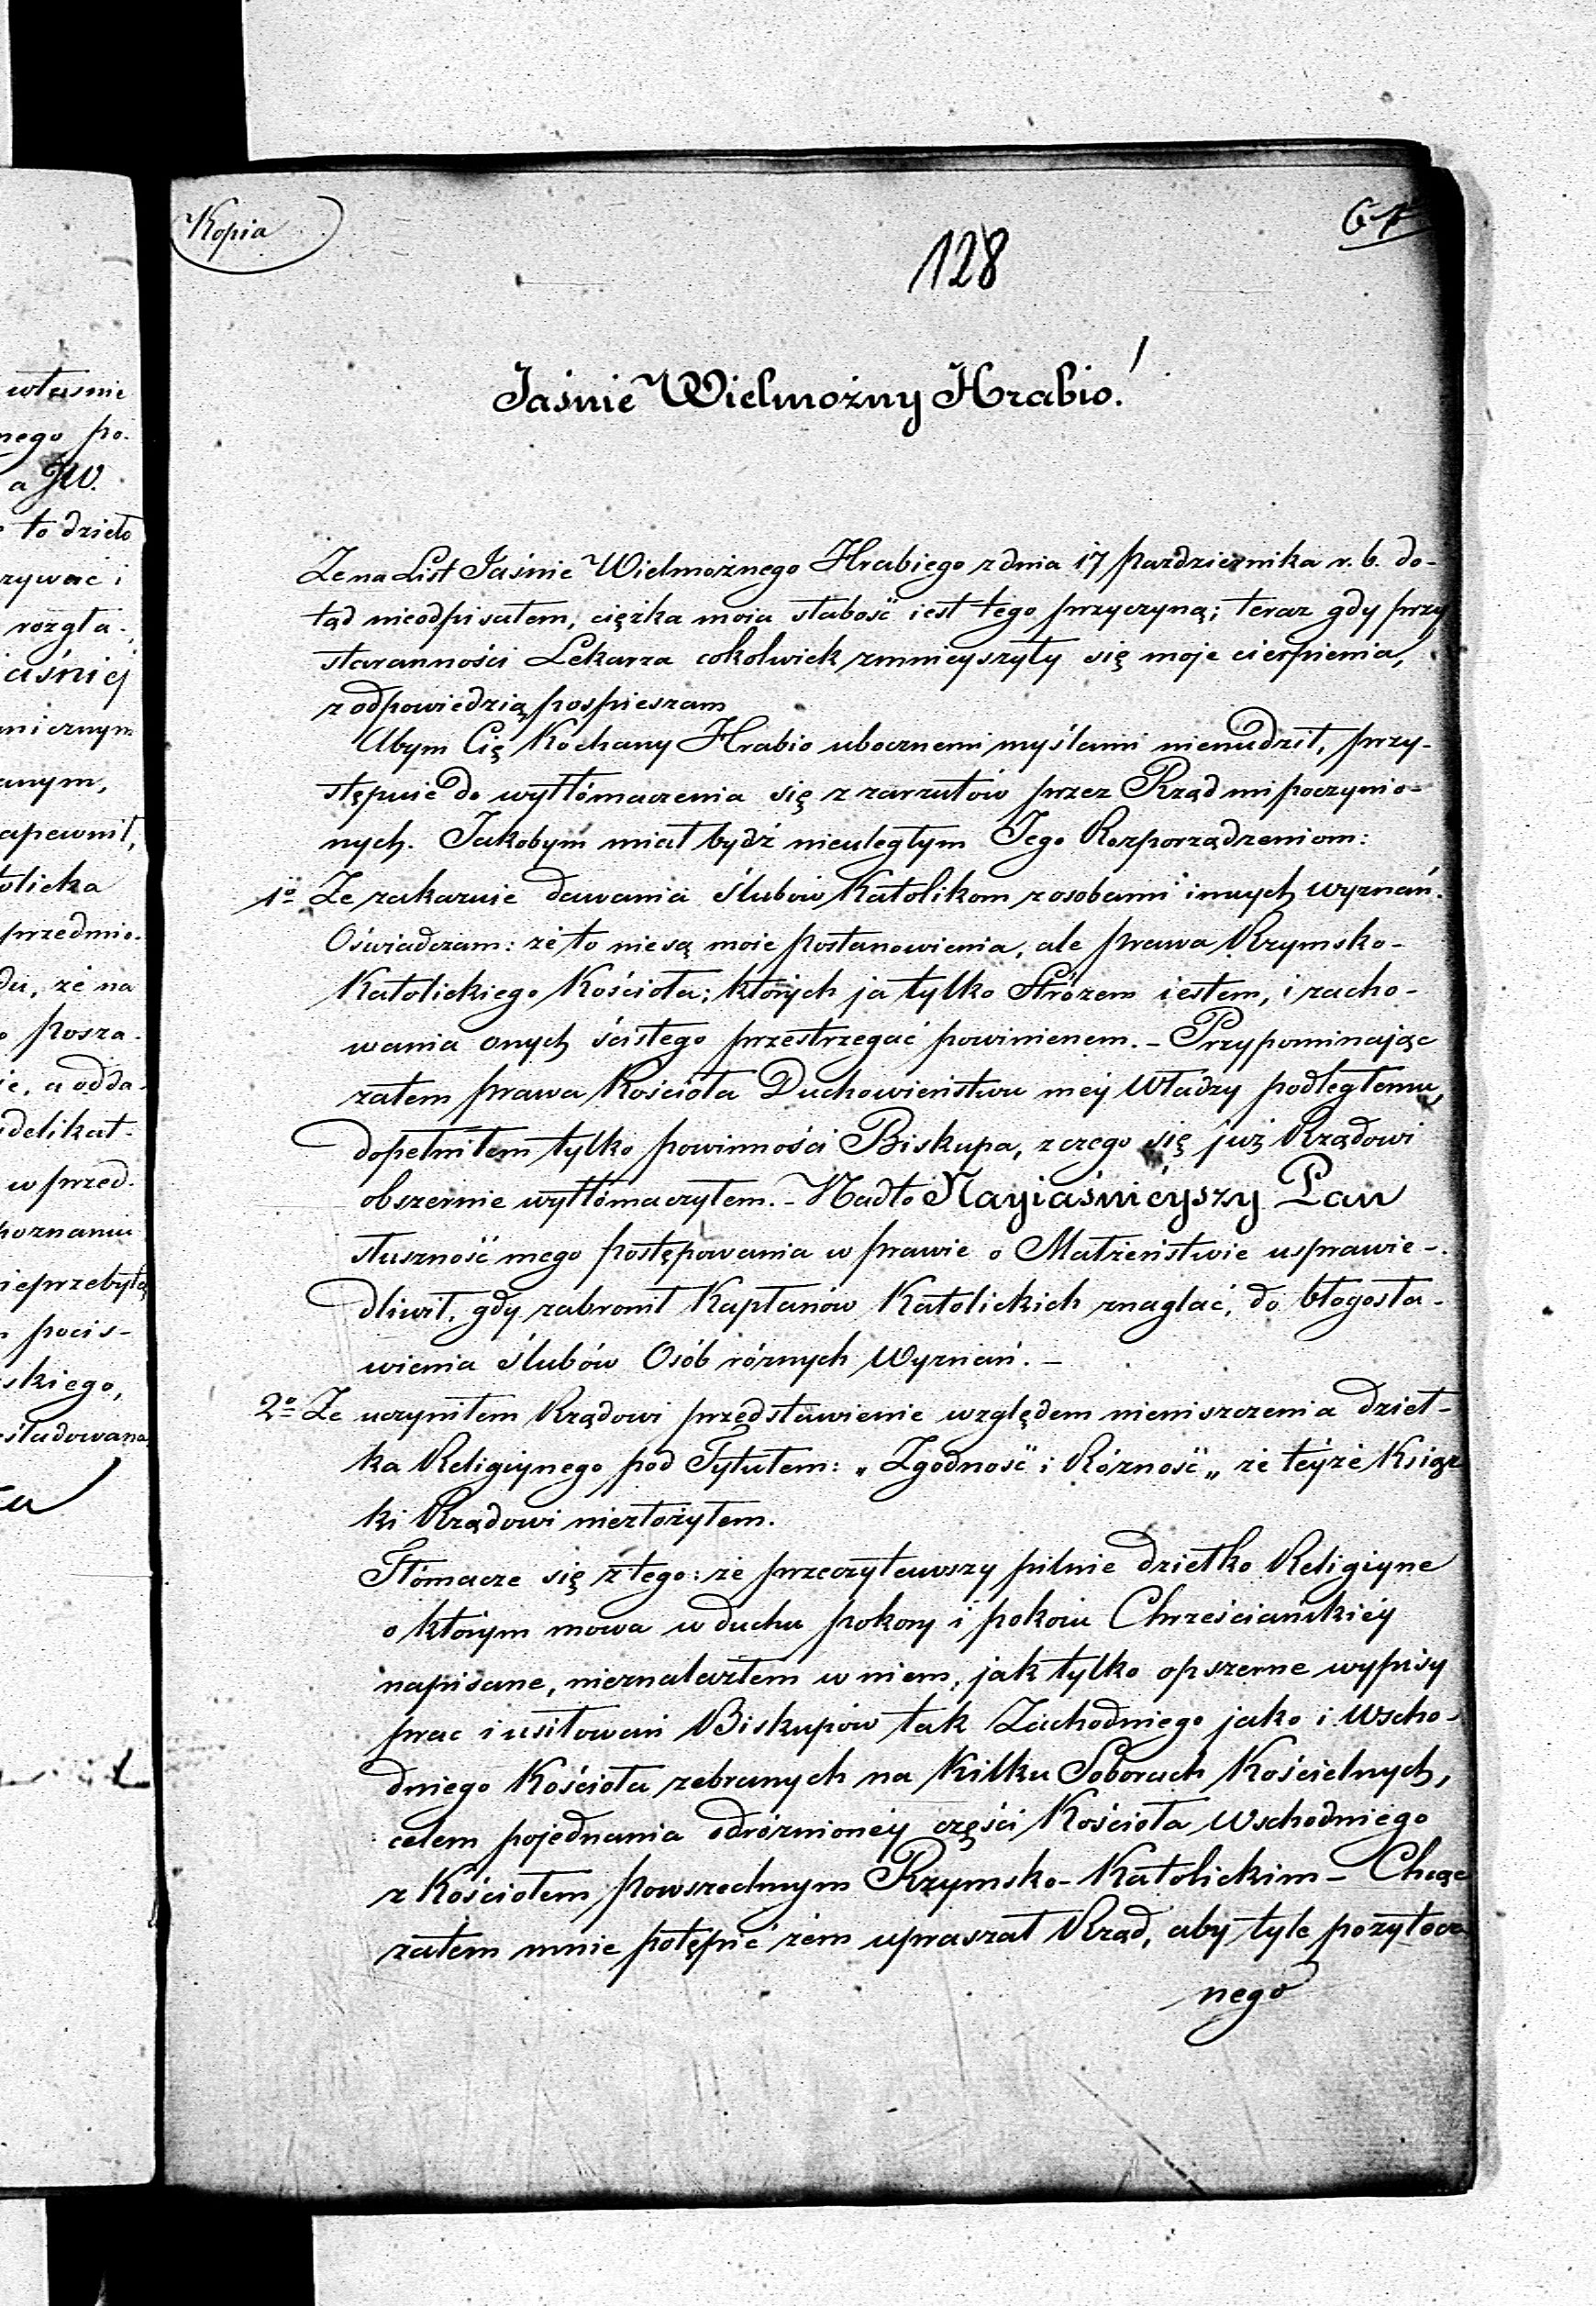 Kopia
64
128
Jaśnie Wielmożny Hrabio!
Że na List Jaśnie Wielmożnego Hrabiego z dnia 17 Pazdziernika r. b. do-
tąd nieodpisałem, ciężka moia słabość iest tego przyczyną; teraz gdy przy
staranności Lekarza cokolwiek zmnieyszyły się moje cierpienia,
z odpowiedzią pospieszam
Abym Cię Kochany Hrabio ubocznemi myślami nienudził, przy-
stępuie do wytłómaczenia się z zarzutów przez Rząd mi poczynio-
nych. Jakobym miał bydź nieuległym Jego Rozporządzeniom:
1o Że zakazuie dawania ślubów Katolikom z osobami innych wyznań.
Oświadczam: że to niesą moie postanowienia, ale prawa Rzymsko-
Katolickiego Kościoła; których ja tylko Stróżem iestem, i zacho-
wania onych ścisłego przestrzegać powinienem. - Przypominając
zatem prawa Kościoła Duchowieństwu mey Władzy podległemu,
dopełniłem tylko powinności Biskupa, z czego się już Rządowi
obszernie wytłómaczyłem. - Nadto Nayiaśnieyszy Pan
słuszność mego postępowania w prawie o Małżeństwie usprawie-
dliwił, gdy zabronił Kapłanów Katolickich znaglać, do błogosła-
wienia ślubów Osób różnych Wyznań. -
2o Że uczyniłem Rządowi przedstawienie względem nieniszczenia dzieł-
ka Religiynego pod Tytułem: „Zgodność i Różność„ że teyże Książ
ki Rządowi niezłożyłem.
Tłómacze się z tego: że przeczytawszy pilnie dziełko Religiyne
o którym mowa w duchu pokory i pokoiu Chrześciańskiéy
napisane, nieznalazłem w niem, jak tylko opszerne wypisy
prac i usiłowań Biskupów tak Zachodniego jako i Wscho-
dniego Kościoła zebranych na Kilku Soborach Kościelnych,
celem pojednania odróżnionéy części Kościoła Wschodniego
z Kościołem powszechnym Rzymsko-Katolickim - Chcąc
zatem mnie potępić żem upraszał Rząd, aby tyle pożytecz
nego
własnie
nego po-
a JW.
to dzieło
rozgła-
aśniej
anym,
apewnił,
przedmio-
du, że na
posza-
idelikat-
w przed-
poznaniu
skiego,